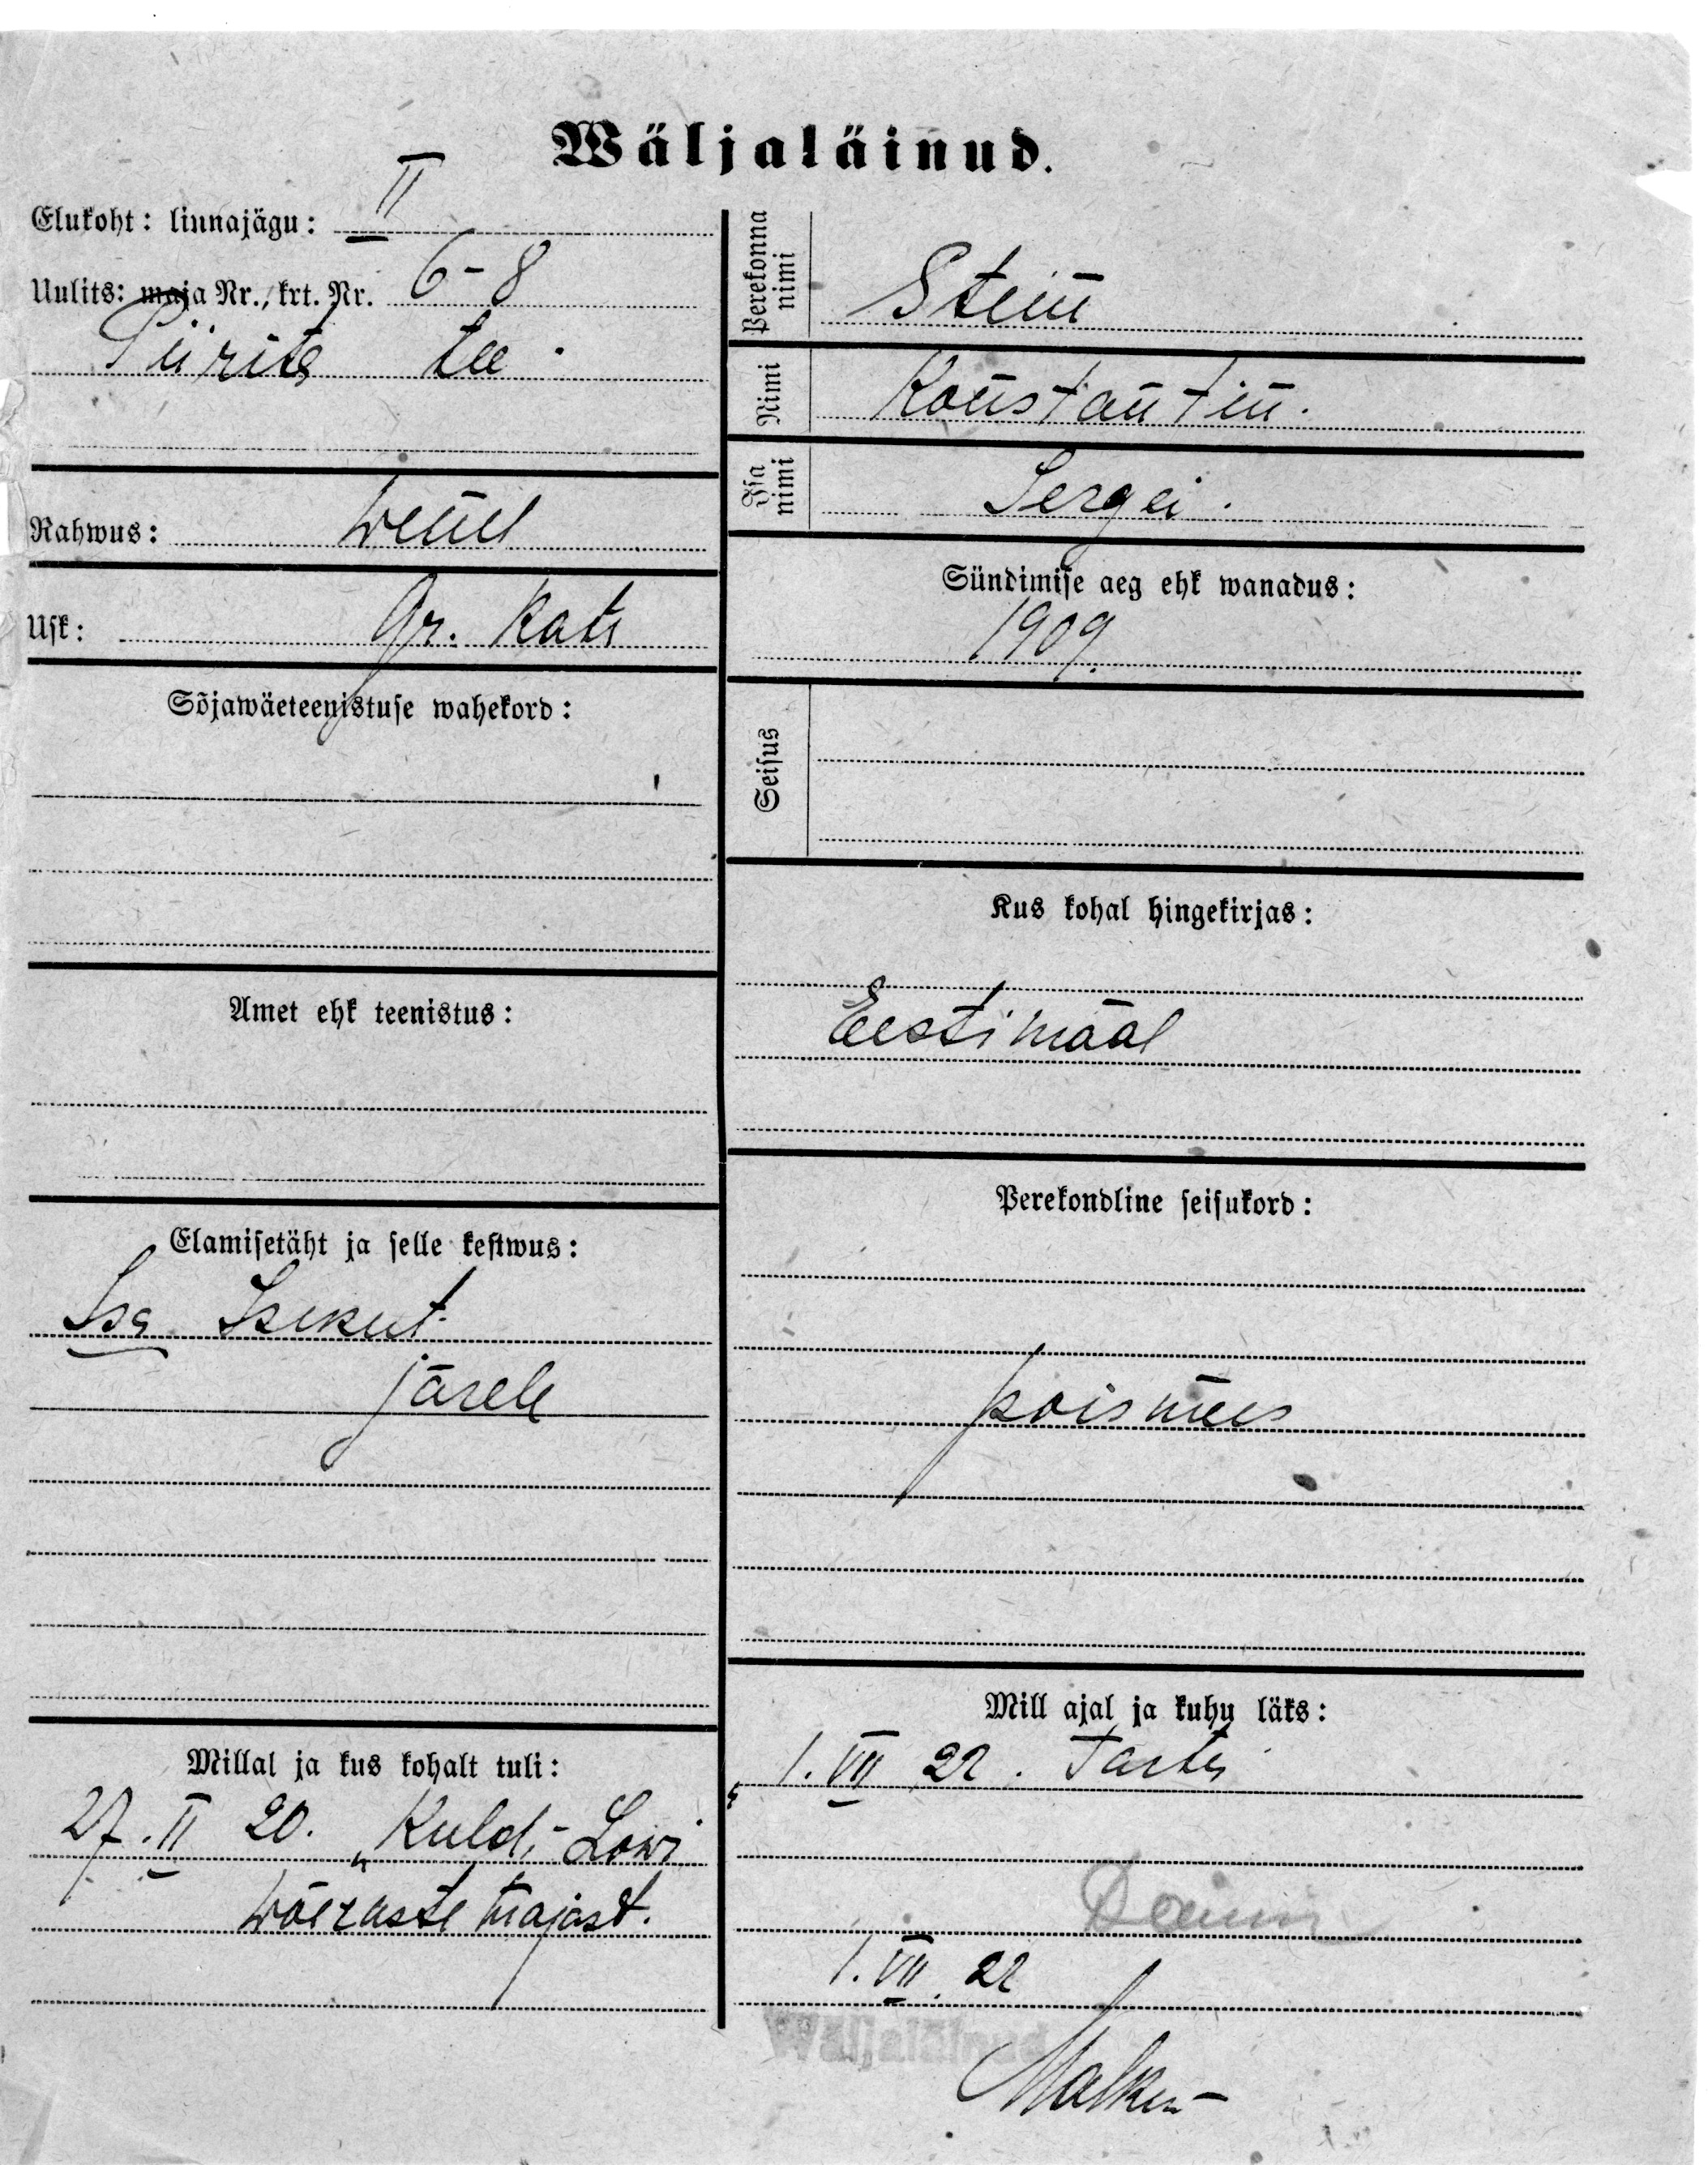 Wäljaläinud.
Elukoht: linnajägu: II
Uulits: maja Nr., krt. Nr. 6-8
Piirita tee.
Rahwus: wene
Usk: Gr. Kats
Sõjawäeteenistuse wahekord:
Amet ehk teenistus:
Elamisetäht ja selle kestwus:
Isa Isikut
järele
Millal ja kus kohalt tuli:
27.II 20. „Kuld-Lowi
wõeraste majast.
Perekonna nimi
Stein
Nimi
Konstantin.
Isa nimi
Sergei.
Sündimise aeg ehk wanadus:
1909.
Seisus
Kus kohal hingekirjas:
Eestimaal
Perekondline seisukord:
poismees
Mill ajal ja kuhu läks:
1.VII 22. Tartu
1.VII. 22
Wäljaläinud